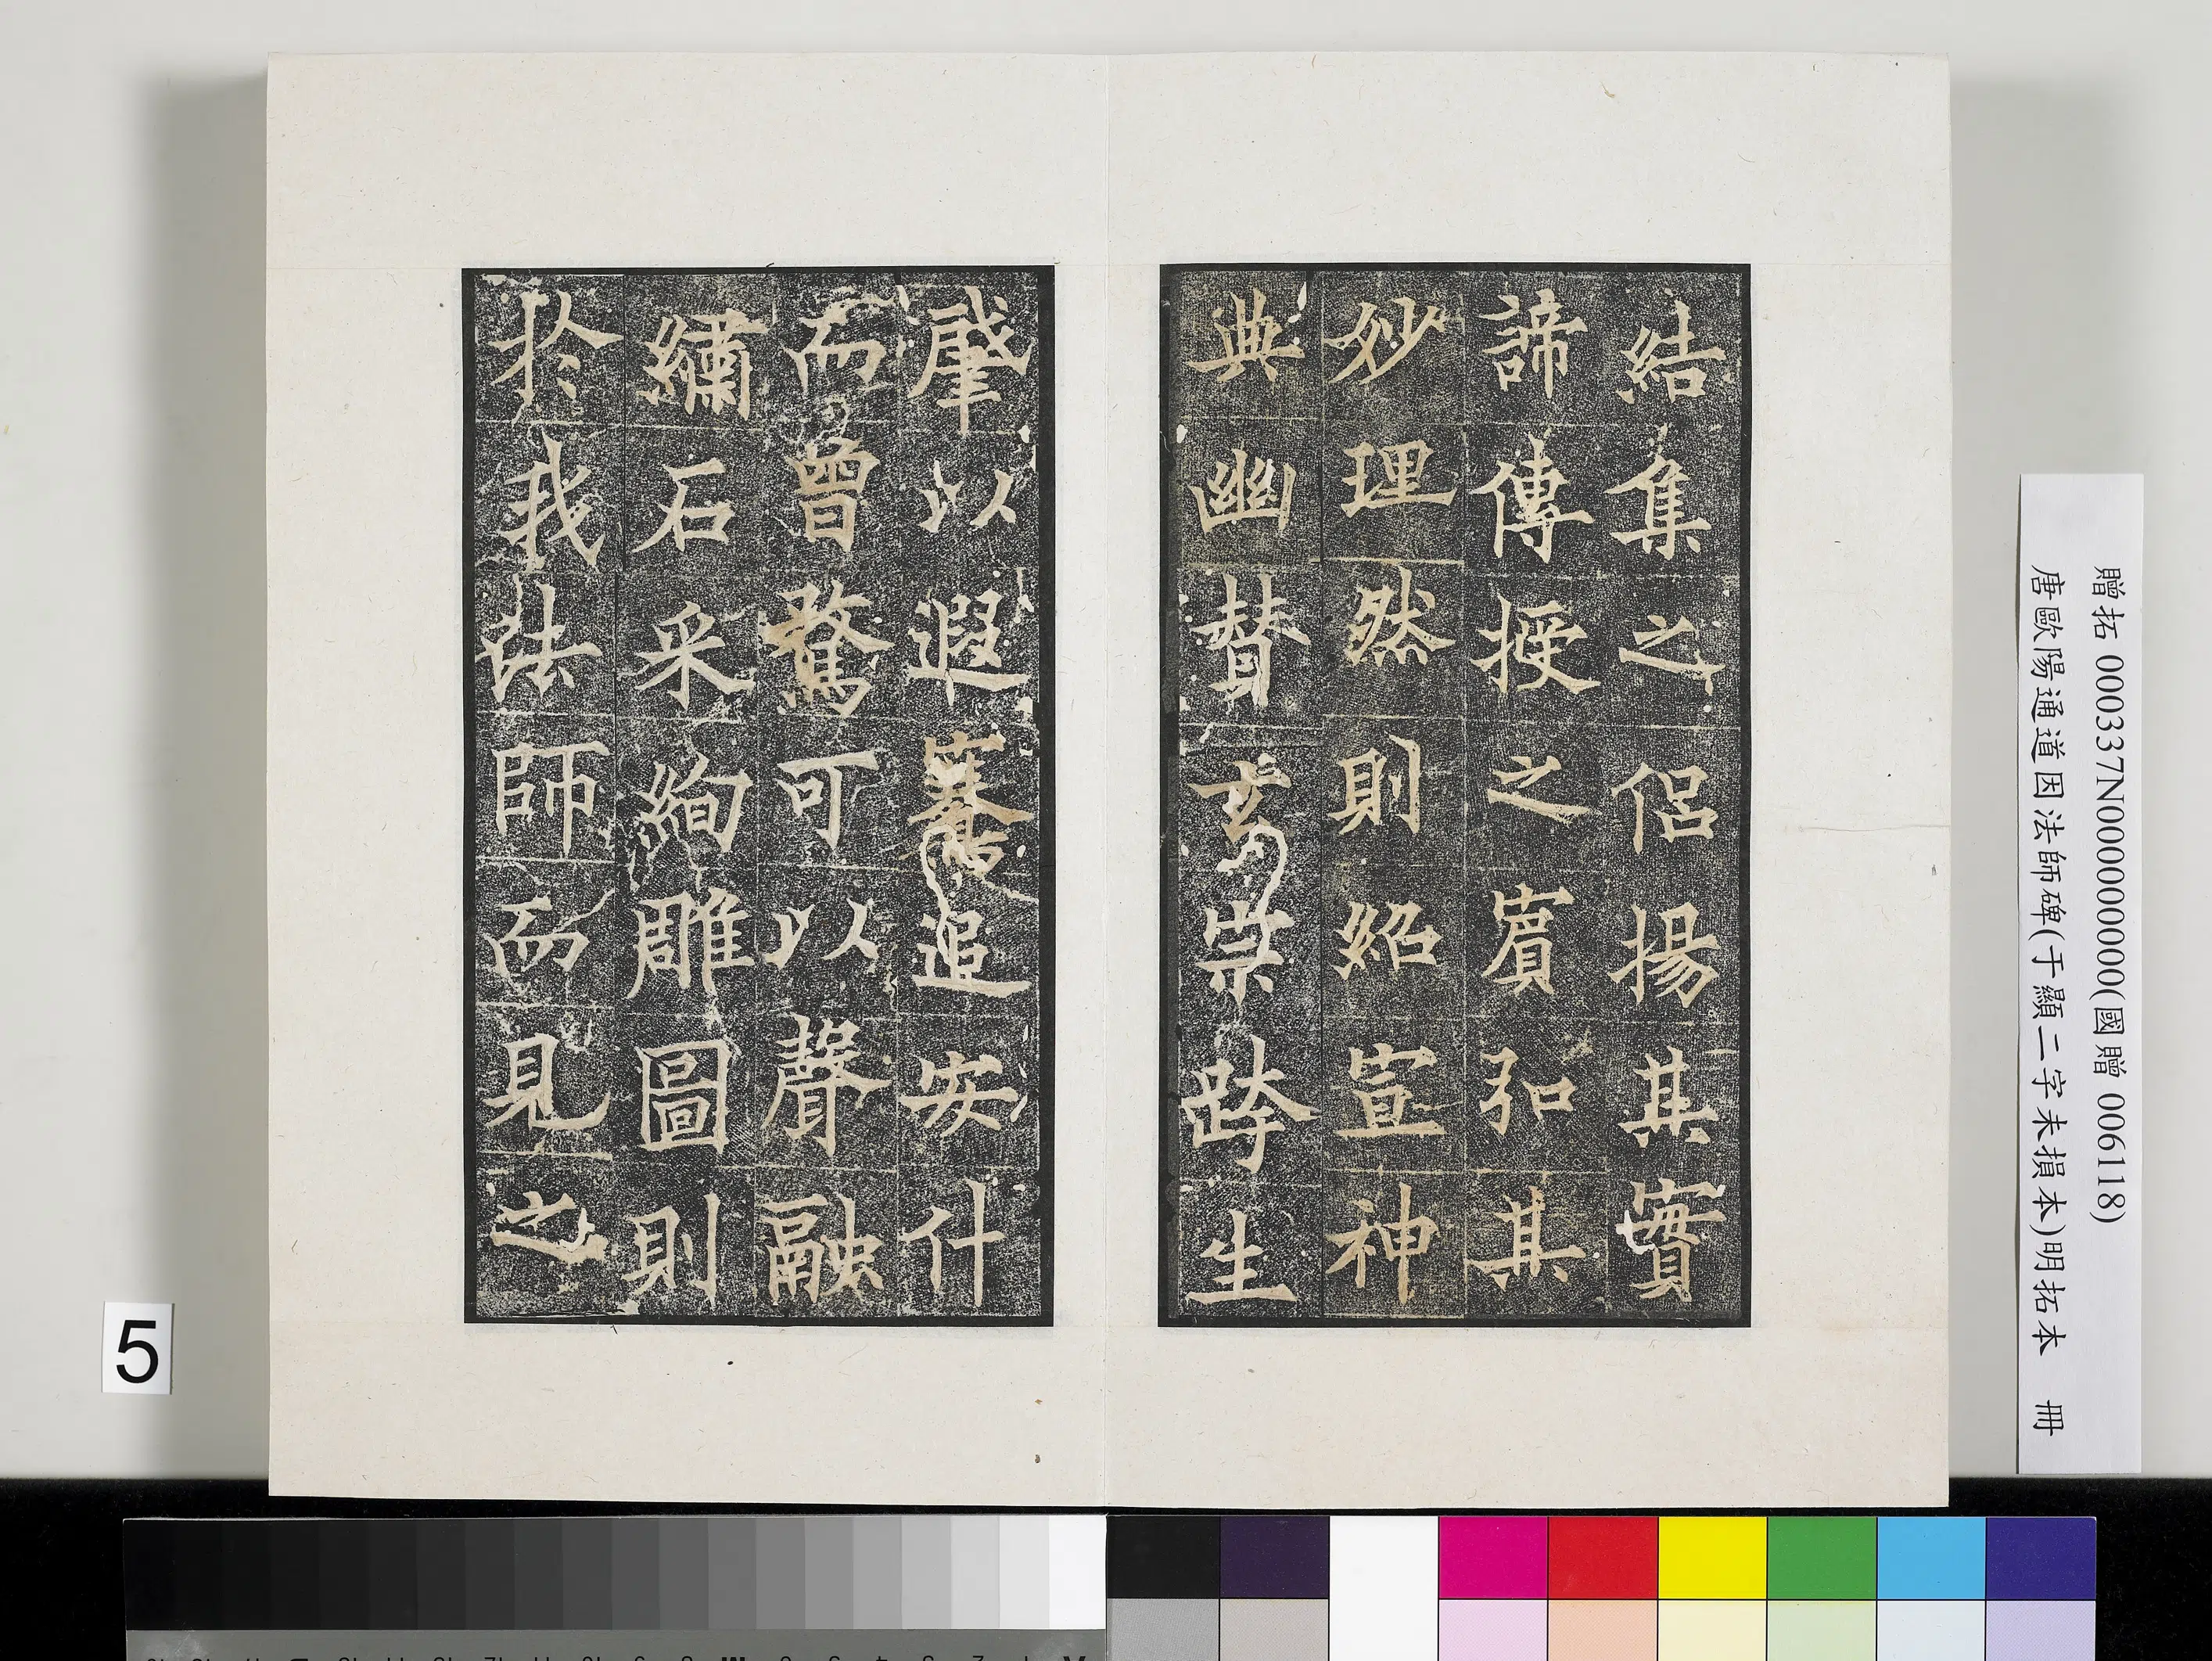 結集之侶揚其實
諦傳授之賓弘其
妙理然則紹宣神
典幽賛玄崇跨生
肇以遐騫追安什
而曾騖可以聲融
繡石采絢雕圖則
於我法師而見之
贈拓 000337N000000000(國贈 006118)
唐歐陽通道因法師碑(于顯二字未損本)明拓本 冊
5